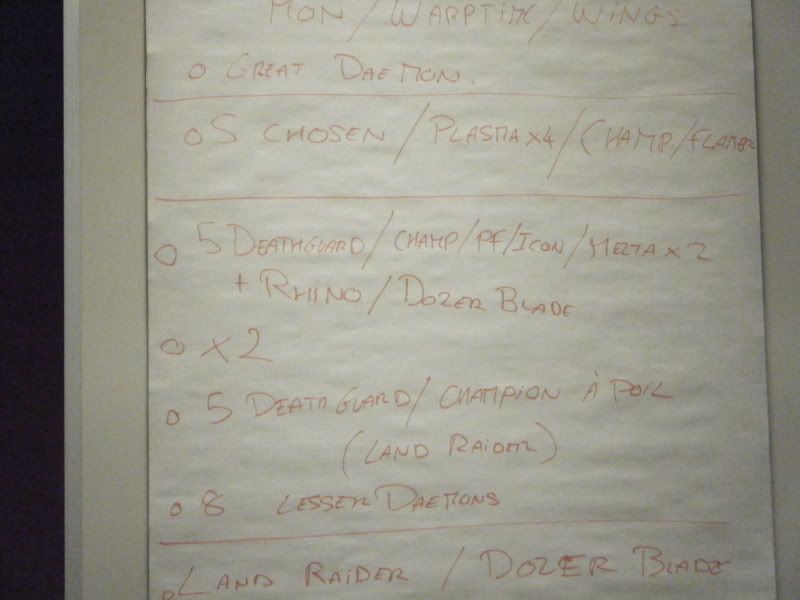 MON / WARPTIME / WINGS
O GREAT DAEMON.
O 5 CHOSEN / PLASMA x4 / CHAMP / FLAMER
O 5 DEATHGUARD / CHAMP / PF / ICON / MELTA x 2
+ RHINO / DOZER BLADE
O x2
O 5 DEATH GUARD / CHAMPION À POIL
(LAND RAIDER)
O 8 LESSER DAEMONS
O LAND RAIDER / DOZER BLADE